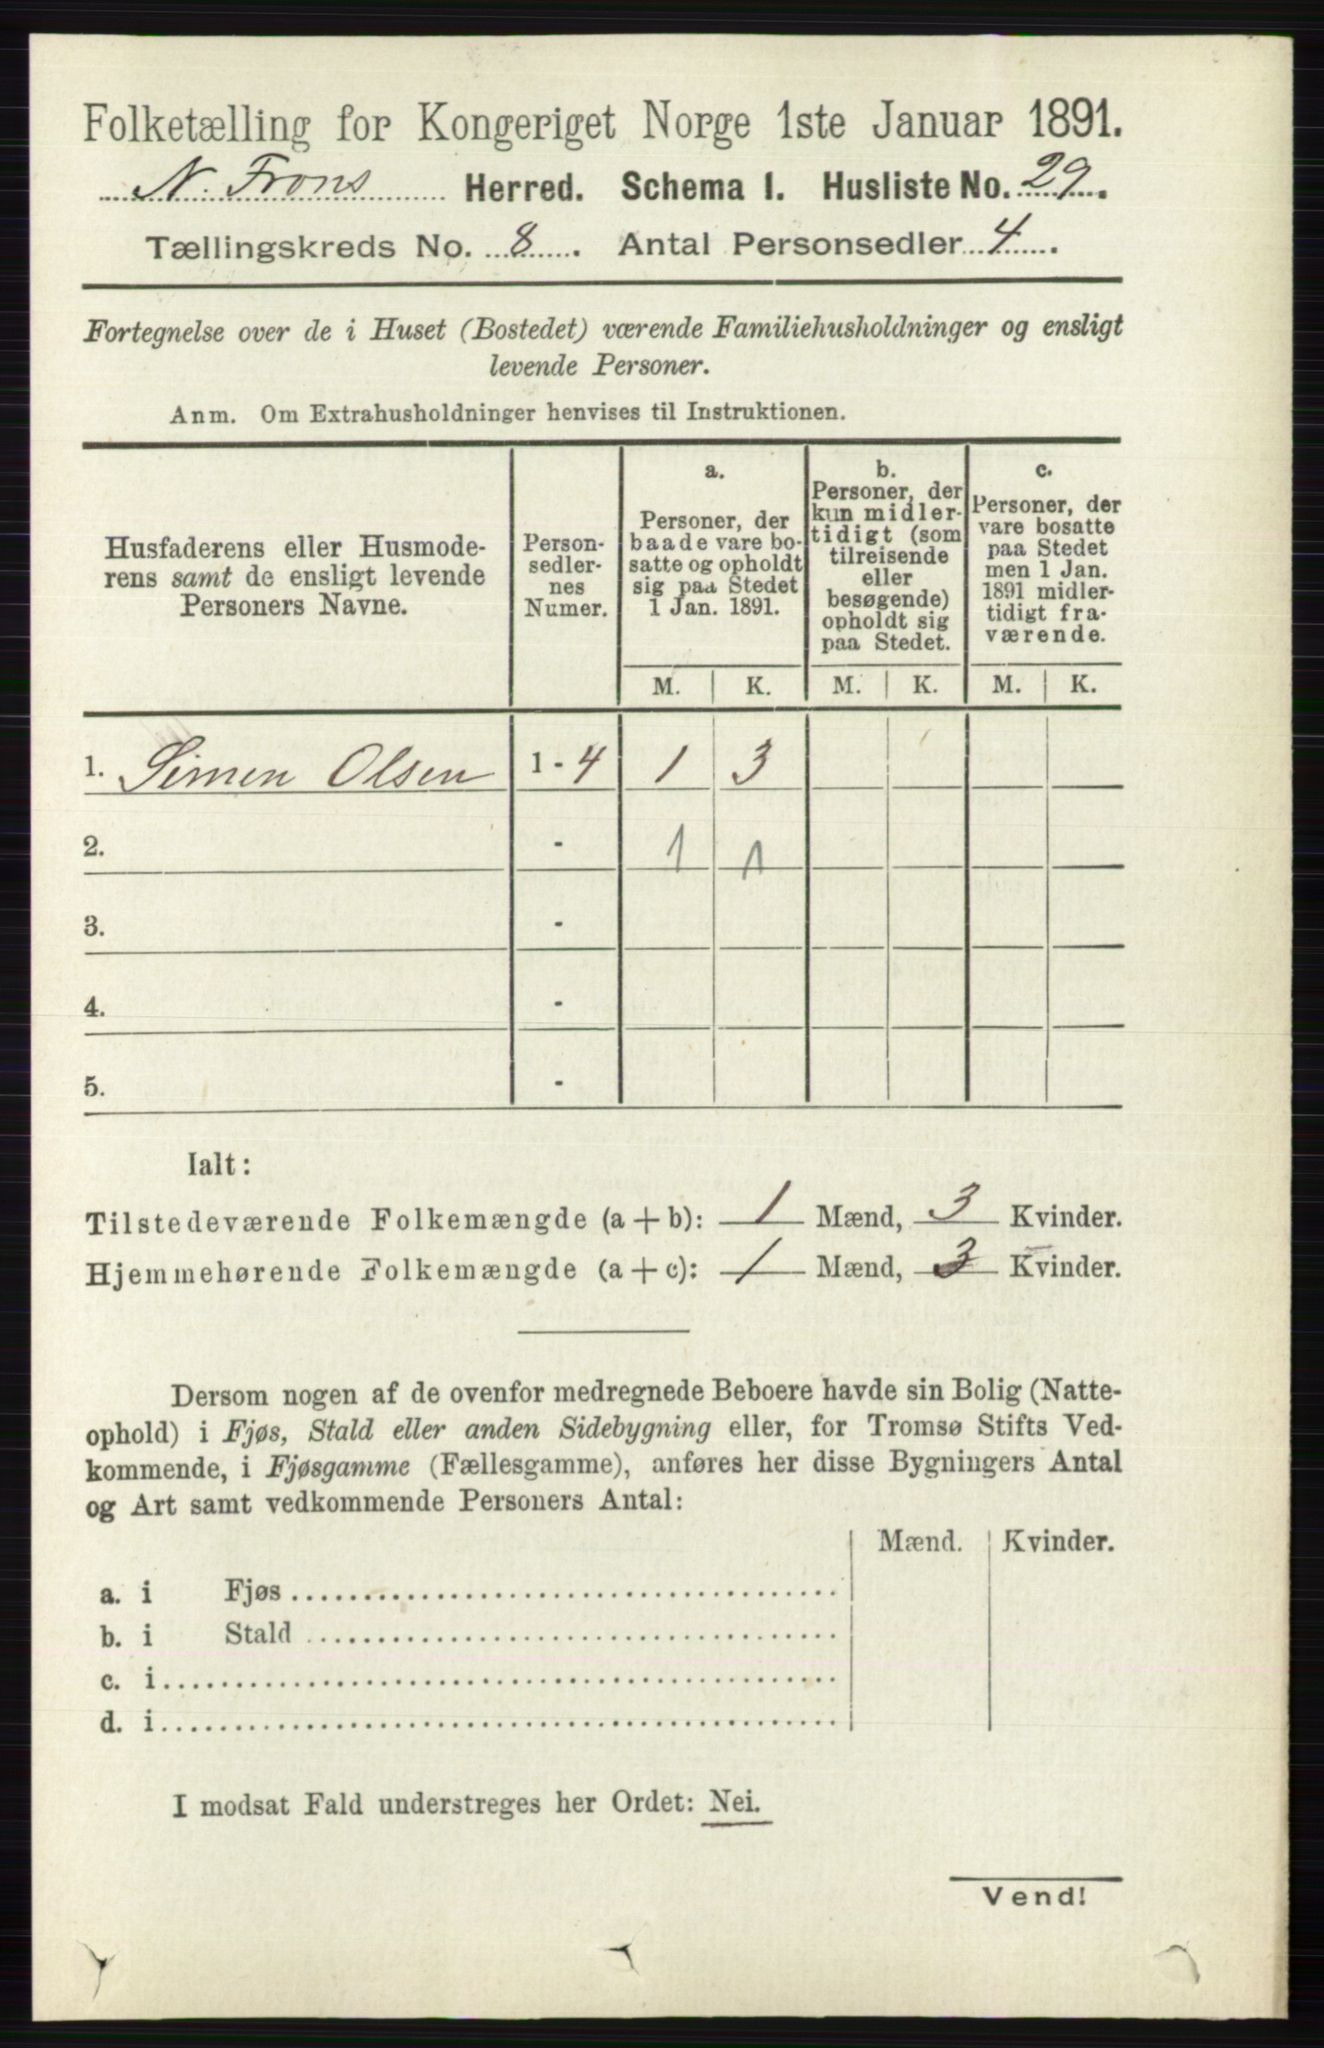 Folketælling for Kongeriget Norge 1ste Januar 1891.
N. Frons Herred. Schema I. Husliste No. 29.
Tællingskreds No. 8. Antal Personsedler 4.
Fortegnelse over de i Huset (Bostedet) værende Familiehusholdninger og ensligt
levende Personer.
Anm. Om Extrahusholdninger henvises til Instruktionen.
Husfaderens eller Husmode-
rens samt de ensligt levende
Personers Navne.
Person-
sedler-
nes
Numer.
a.
Personer, der
baade vare bo-
satte og opholdt
sig paa Stedet
1 Jan. 1891.
b.
Personer, der
kun midler-
tidigt (som
tilreisende
eller
besøgende)
opholdt sig
paa Stedet.
c.
Personer, der
vare bosatte
paa Stedet
men 1 Jan.
1891 midler-
tidigt fra-
værende.
M. K. M. K. M. K.
1. Simen Olsen 1 - 4 1 3
2. - 1 1
3. -
4. -
5. -
Ialt:
Tilstedeværende Folkemængde (a + b): 1 Mænd, 3 Kvinder.
Hjemmehørende Folkemængde (a + c): 1 Mænd, 3 Kvinder.
Dersom nogen af de ovenfor medregnede Beboere havde sin Bolig (Natte-
ophold) i Fjøs, Stald eller anden Sidebygning eller, for Tromsø Stifts Ved-
kommende, i Fjøsgamme (Fællesgamme), anføres her disse Bygningers Antal
og Art samt vedkommende Personers Antal:
Mænd. Kvinder.
a. i Fjøs
b. i Stald
c. i
d. i
I modsat Fald understreges her Ordet: Nei.
Vend!